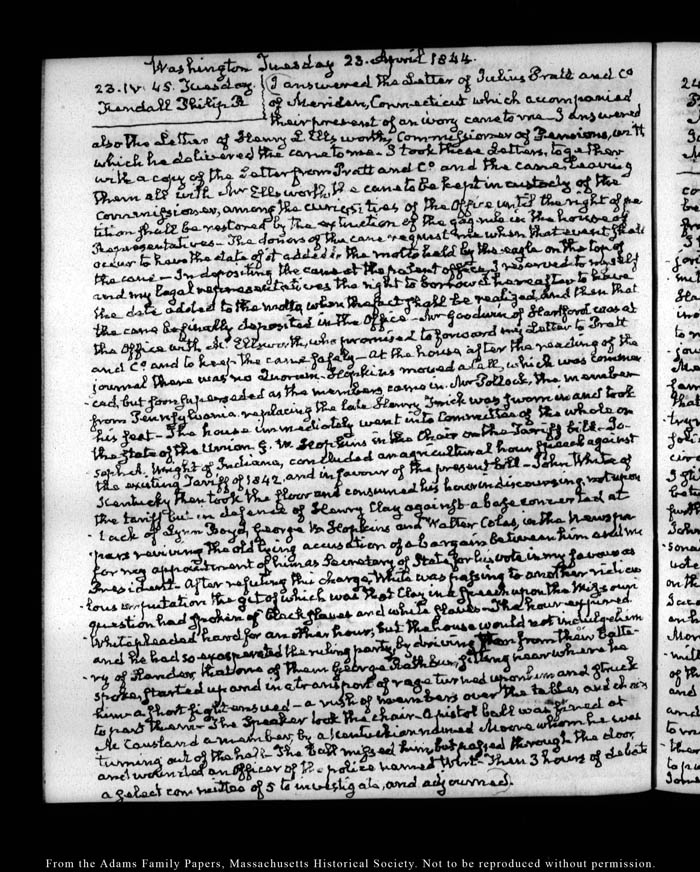 Washington Tuesday 23. April 1844.
23. IV. 45. Tuesday.
Kendall Philip R
I answered the Letter of Julius Pratt and Co
of Meriden, Connecticut which accompanied
their present of an ivory cane to me_ I answered
also the Letter of Henry L. Ellsworth, Commissioner of Pensions, with
which he delivered the cane to me. I took these Letters, together
with a copy of the Letter from Pratt and Co. and the cane, leaving
them all with Mr Ellsworth, the cane to be kept in custody of the
Commissioner, among the curiosities of the Office until the right of pe
tition shall be restored by the extinction of the gag rule in the house of
Representatives_ The donors of the cane request me when that event shall
occur to have the date of it added to the motto held by the eagle on the top of
the cane_ In depositing the cane at the patent office, I reserved to myself
and my legal representatives the right to borrow it hereafter to have
the date added to the motto when the fact shall be realized, and then that
the cane be finally deposited in the Office_ Mr Goodwin of Hartford was at
the Office with Mr Ellsworth, who promised to forward my Letter to Pratt
and Co and to keep the cane safely_ At the house after the reading of the
journal there was no Quorum. Hopkins moved a call, which was commen
-ced, but soon superseded as the members came in. Mr Pollock, the member
from Pennsylvania replacing the late Henry Frick was sworn in and took
his seat_ The house immediately went into Committee of the whole on
the state of the Union G. W. Hopkins in the Chair on the Tariff bill_ Jo-
seph A. Wright of Indiana, concluded an agricultural hour speech against
the existing Tariff of 1842, and in favour of the present bill_ John White of
Kentucky then took the floor and consumed his hour in discoursing, not upon
the tariff but in defence of Henry Clay against a base concerted at
-tack of Lynn Boyd, George W Hopkins and Walter Coles, in the Newspa-
pers reviving the old lying accusation of a bargain between him and me
for my appointment of him as Secretary of State, for his vote in my favour as
President_ After refuting this charge, White was passing to another ridicu
-lous imputation the gist of which was that Clay in a speech upon the Missouri
question had spoken of black slaves and white slaves_ The hour expired.
White pleaded hard for another hour, but the house would not indulge him
and he had so exasperated the ruling party, by driving them from their batte-
ry of slander, that one of them George Rathbun, sitting near where he
spoke, started up and in a transport of rage turned upon him and struck
him_ a short fight ensued_ a rush of members over the tables and chairs
to part them_ The Speaker took the chair_ A pistol ball was fired at
Mc Causland a member, by a Kentuckian named Moore whom he was
turning out of the hall_ The ball missed him but passed through the door
and wounded an Officer of the police named Wirt_ Then 3 hours of debate
a select committee of 5 to investigate, and adjourned.
From the Adams Family Papers, Massachusetts Historical Society. Not to be reproduced without permission.